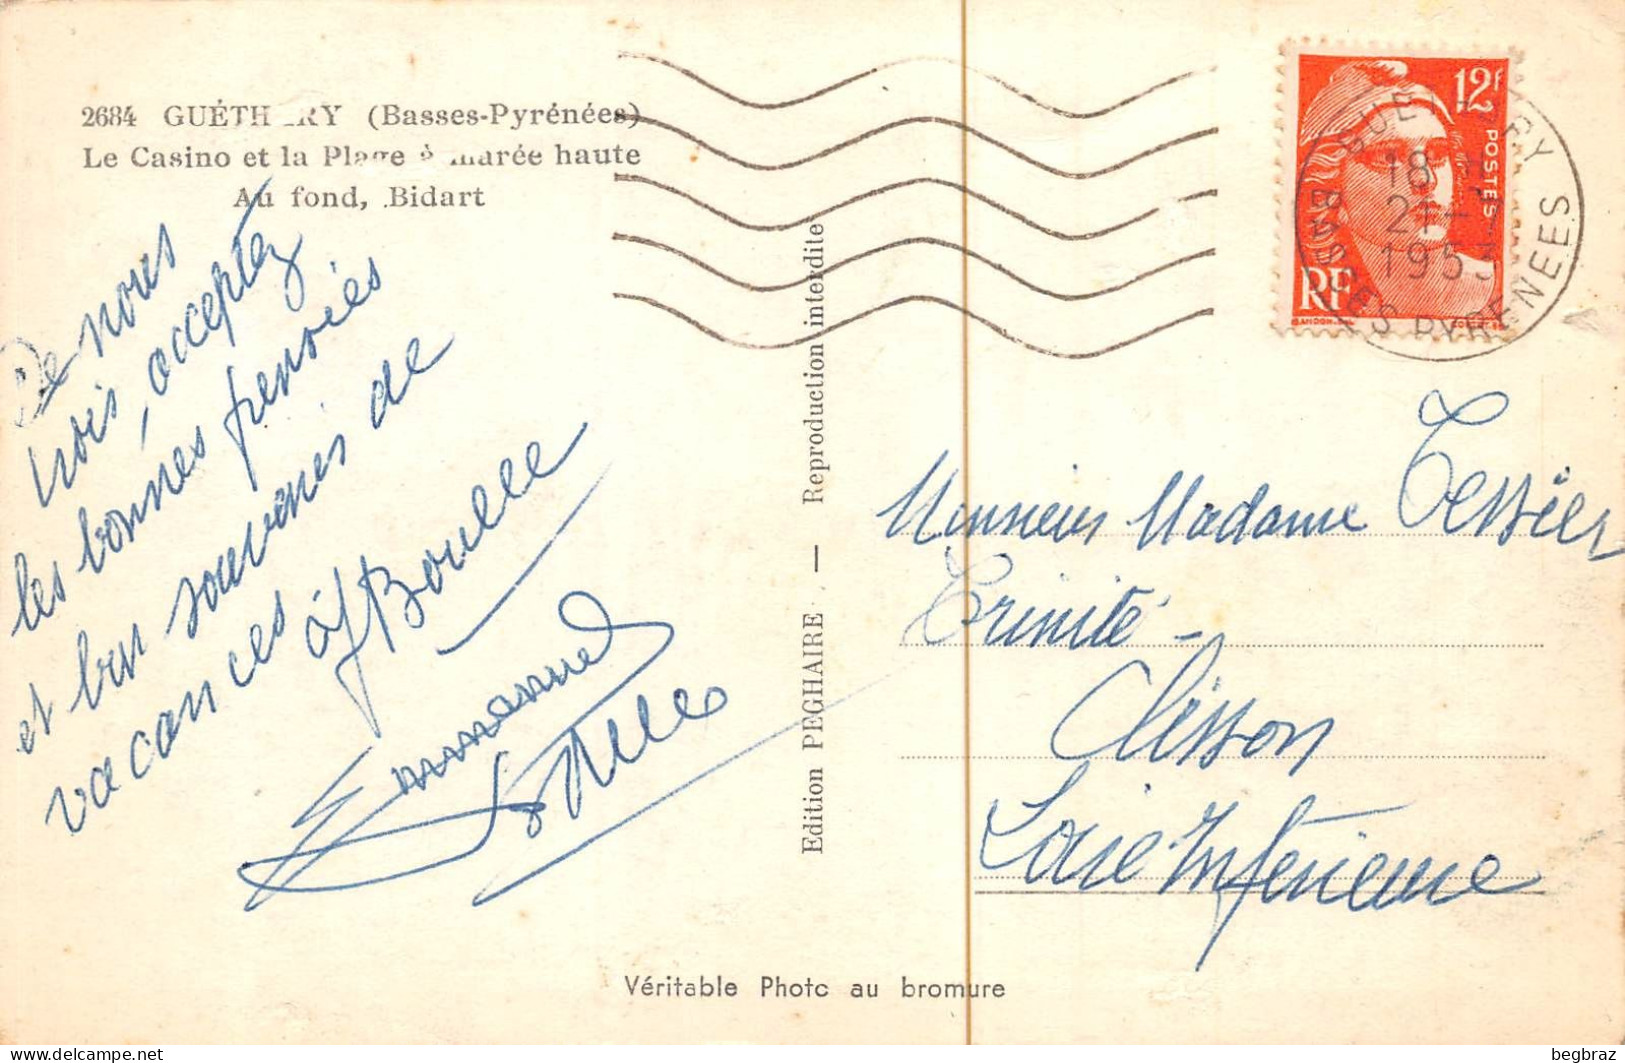 2684 GUÉTHARY (Basses-Pyrénées)
Le Casino et la Plage à marée haute
Au fond, Bidart
De nous
trois, acceptez
les bonnes pensées
et bon souvenir de
vacances
Boulle
Emmanuel
Edition PEGHAIRE. — Reproduction interdite
12F
POSTES
RF
GUETHARY
18 H
21 -
1953
BASSES PYRENEES
Monsieur Madame Tessier
Trinité -
Clisson
Loire Inférieure
Véritable Photo au bromure
begbraz